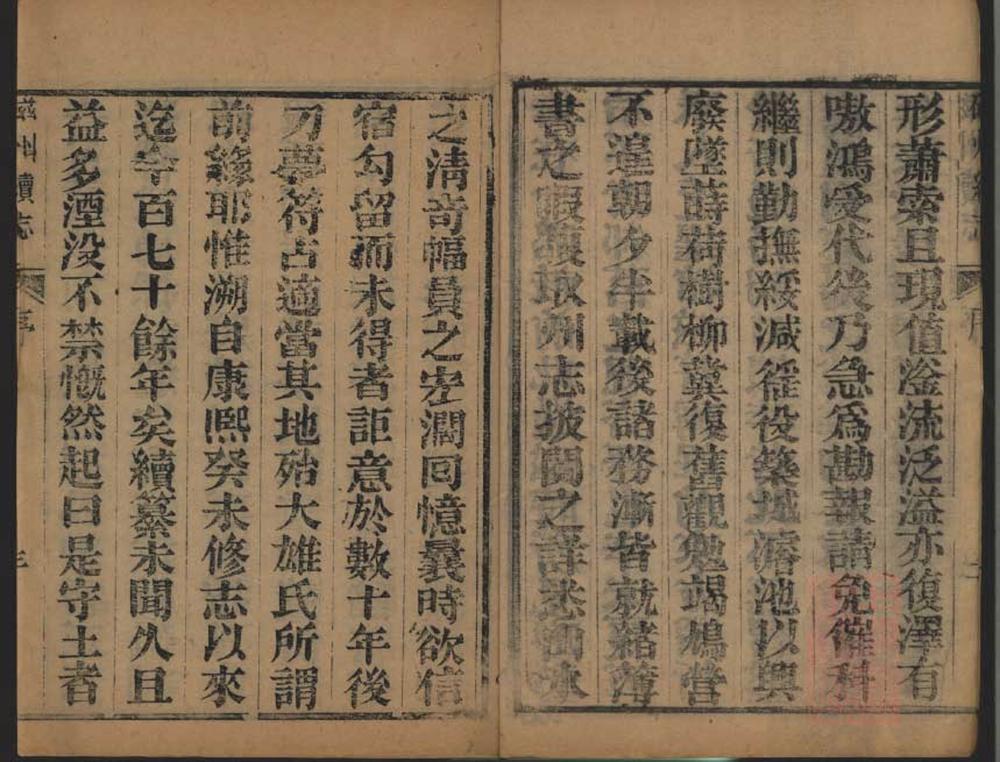 形蕭索且現值滏流泛溢亦復澤有
嗷鴻受代後乃急爲勘報請免催科
繼則勤撫綏減徭役築城濬池以興
廢墜蒔荷樹柳冀復舊觀勉竭鳩營
不遑朝夕半載後諸務漸皆就緒薄
書之暇復取州志披閱之詳悉
之淸奇幅員之宏濶回憶曩時欲信
宿勾留而未得者詎意於數十年後
刀夢符占適當其地殆大雄氏所謂
前緣耶惟溯自康熙癸未修志以來
迄今百七十餘年矣續纂未聞久且
益多湮没不禁慨然起曰是守土者
磁州續志
序
三